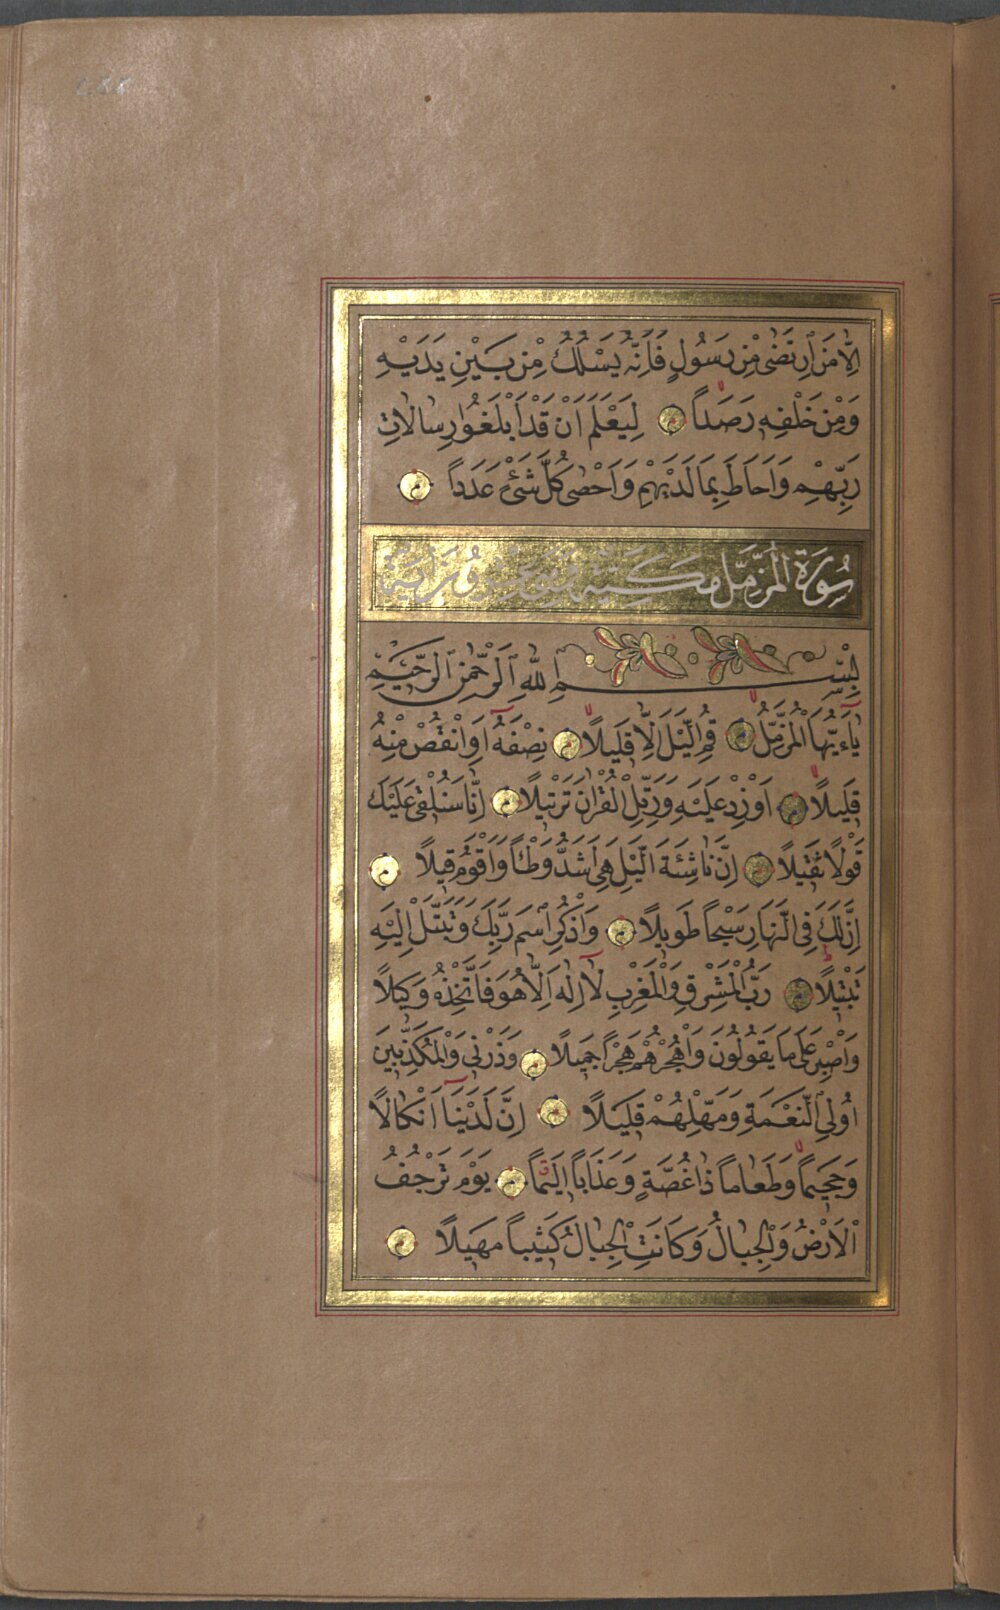 ٤٨٨
اِلَّا مَنِ ارْتَضٰى مِنْ رَسُولٍ فَاِنَّهُ يَسْلُكُ مِنْ بَيْنِ يَدَيْهِ
وَمِنْ خَلْفِهِ رَصَداً لِيَعْلَمَ اَنْ قَدْ اَبْلَغُوا رِسَالَاتِ
رَبِّهِمْ وَاَحَاطَ بِمَا لَدَيْهِمْ وَاَحْصٰى كُلَّ شَىْءٍ عَدَداً
سُورَةُ الْمُزَّمِّلِ مَكِّيَّةٌ وَهِيَ عِشْرُونَ اٰيَةً
بِسْمِ اللّٰهِ الرَّحْمٰنِ الرَّحِيْمِ
يَٓا اَيُّهَا الْمُزَّمِّلُ قُمِ الَّيْلَ اِلَّا قَلِيلاً نِصْفَهُٓ اَوِ انْقُصْ مِنْهُ
قَلِيلاً اَوْ زِدْ عَلَيْهِ وَرَتِّلِ الْقُرْاٰنَ تَرْتِيلاً اِنَّا سَنُلْقِى عَلَيْكَ
قَوْلاً ثَقِيلاً اِنَّ نَاشِئَةَ الَّيْلِ هِىَ اَشَدُّ وَطْـٔاً وَاَقْوَمُ قِيلاً
اِنَّ لَكَ فِى النَّهَارِ سَبْحاً طَوِيلاً وَاذْكُرِ اسْمَ رَبِّكَ وَتَبَتَّلْ اِلَيْهِ
تَبْتِيلاً رَبُّ الْمَشْرِقِ وَالْمَغْرِبِ لَٓا اِلٰهَ اِلَّا هُوَ فَاتَّخِذْهُ وَكِيلاً
وَاصْبِرْ عَلٰى مَا يَقُولُونَ وَاهْجُرْهُمْ هَجْراً جَمِيلاً وَذَرْنِى وَالْمُكَذِّبِينَ
اُولِى النَّعْمَةِ وَمَهِّلْهُمْ قَلِيلاً اِنَّ لَدَيْنَٓا اَنْكَالاً
وَجَحِيماً وَطَعَاماً ذَا غُصَّةٍ وَعَذَاباً اَلِيماً يَوْمَ تَرْجُفُ
الْاَرْضُ وَالْجِبَالُ وَكَانَتِ الْجِبَالُ كَثِيباً مَهِيلاً